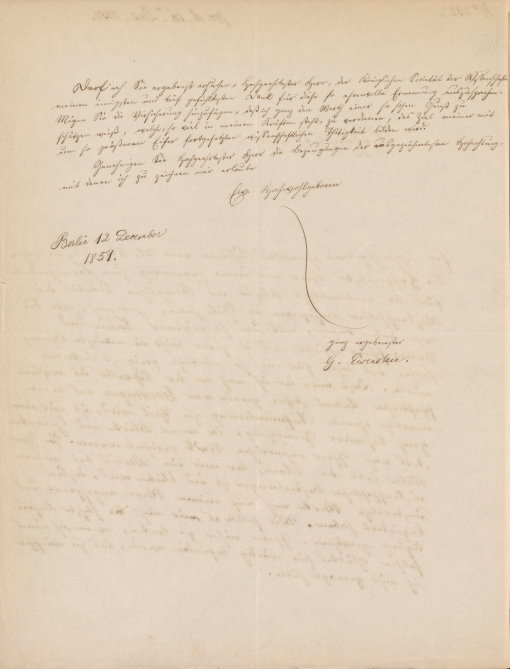 Darf ich Sie ergebenst ersuchen, Hochgeehrtester Herr, der Königlichen Societät der Wissenschaften
meinen innigsten und tief gefühltesten Dank für diese so ehrenvolle Ernennung auszusprechen.
Mögen Sie die Versicherung hinzufügen, daß ich ganz den Werth einer so hohen Gunst zu
schätzen weiß, welche, so viel in meinen Kräften steht, zu verdienen, das Ziel meiner mit
um so größerem Eifer fortgesetzten wissenschaftlichen Thätigkeit bilden wird.
Genehmigen Sie Hochgeehrtester Herr die Bezeugungen der ausgezeichnetsten Hochachtung,
mit denen ich zu zeichnen mir erlaube
Ew. Hochwohlgeboren
Berlin 12 December
1851.
ganz ergebenster
G. Eisenstein.